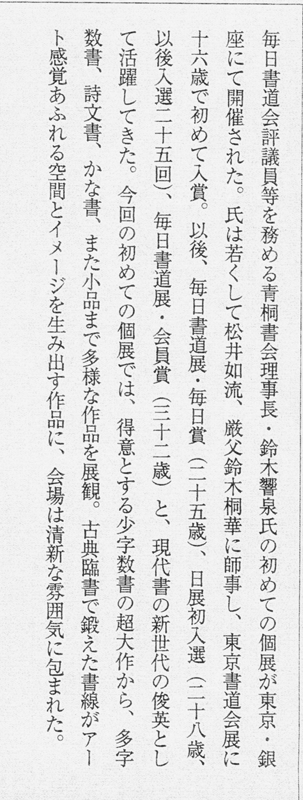 毎日書道会評議員等を務める青桐書会理事長・鈴木響泉氏の初めての個展が東京・銀
座にて開催された。氏は若くして松井如流、厳父鈴木桐華に師事し、東京書道会展に
十六歳で初めて入賞。以後、毎日書道展・毎日賞（二十五歳）、日展初入選（二十八歳、
以後入選二十五回）、毎日書道展・会員賞（三十二歳）と、現代書の新世代の俊英とし
て活躍してきた。今回の初めての個展では、得意とする少字数書の超大作から、多字
数書、詩文書、かな書、また小品まで多様な作品を展観。古典臨書で鍛えた書線がアー
ト感覚あふれる空間とイメージを生み出す作品に、会場は清新な雰囲気に包まれた。